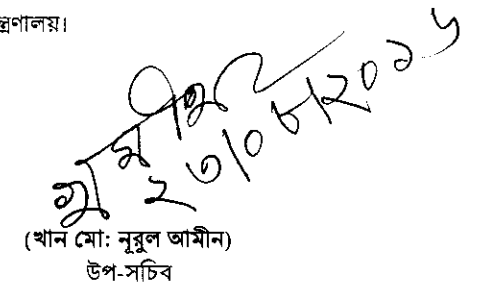 ন্ত্রণালয়।
২৩/০৮/২০১৬
(খান মো: নূরুল আমীন)
উপ-সচিব